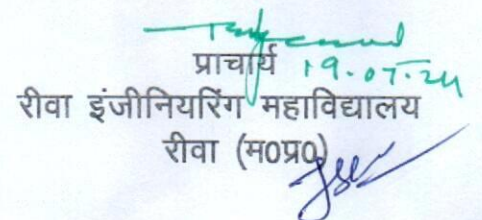 प्राचार्य 19.07.24
रीवा इंजीनियरिंग महाविद्यालय
रीवा (म0प्र0)